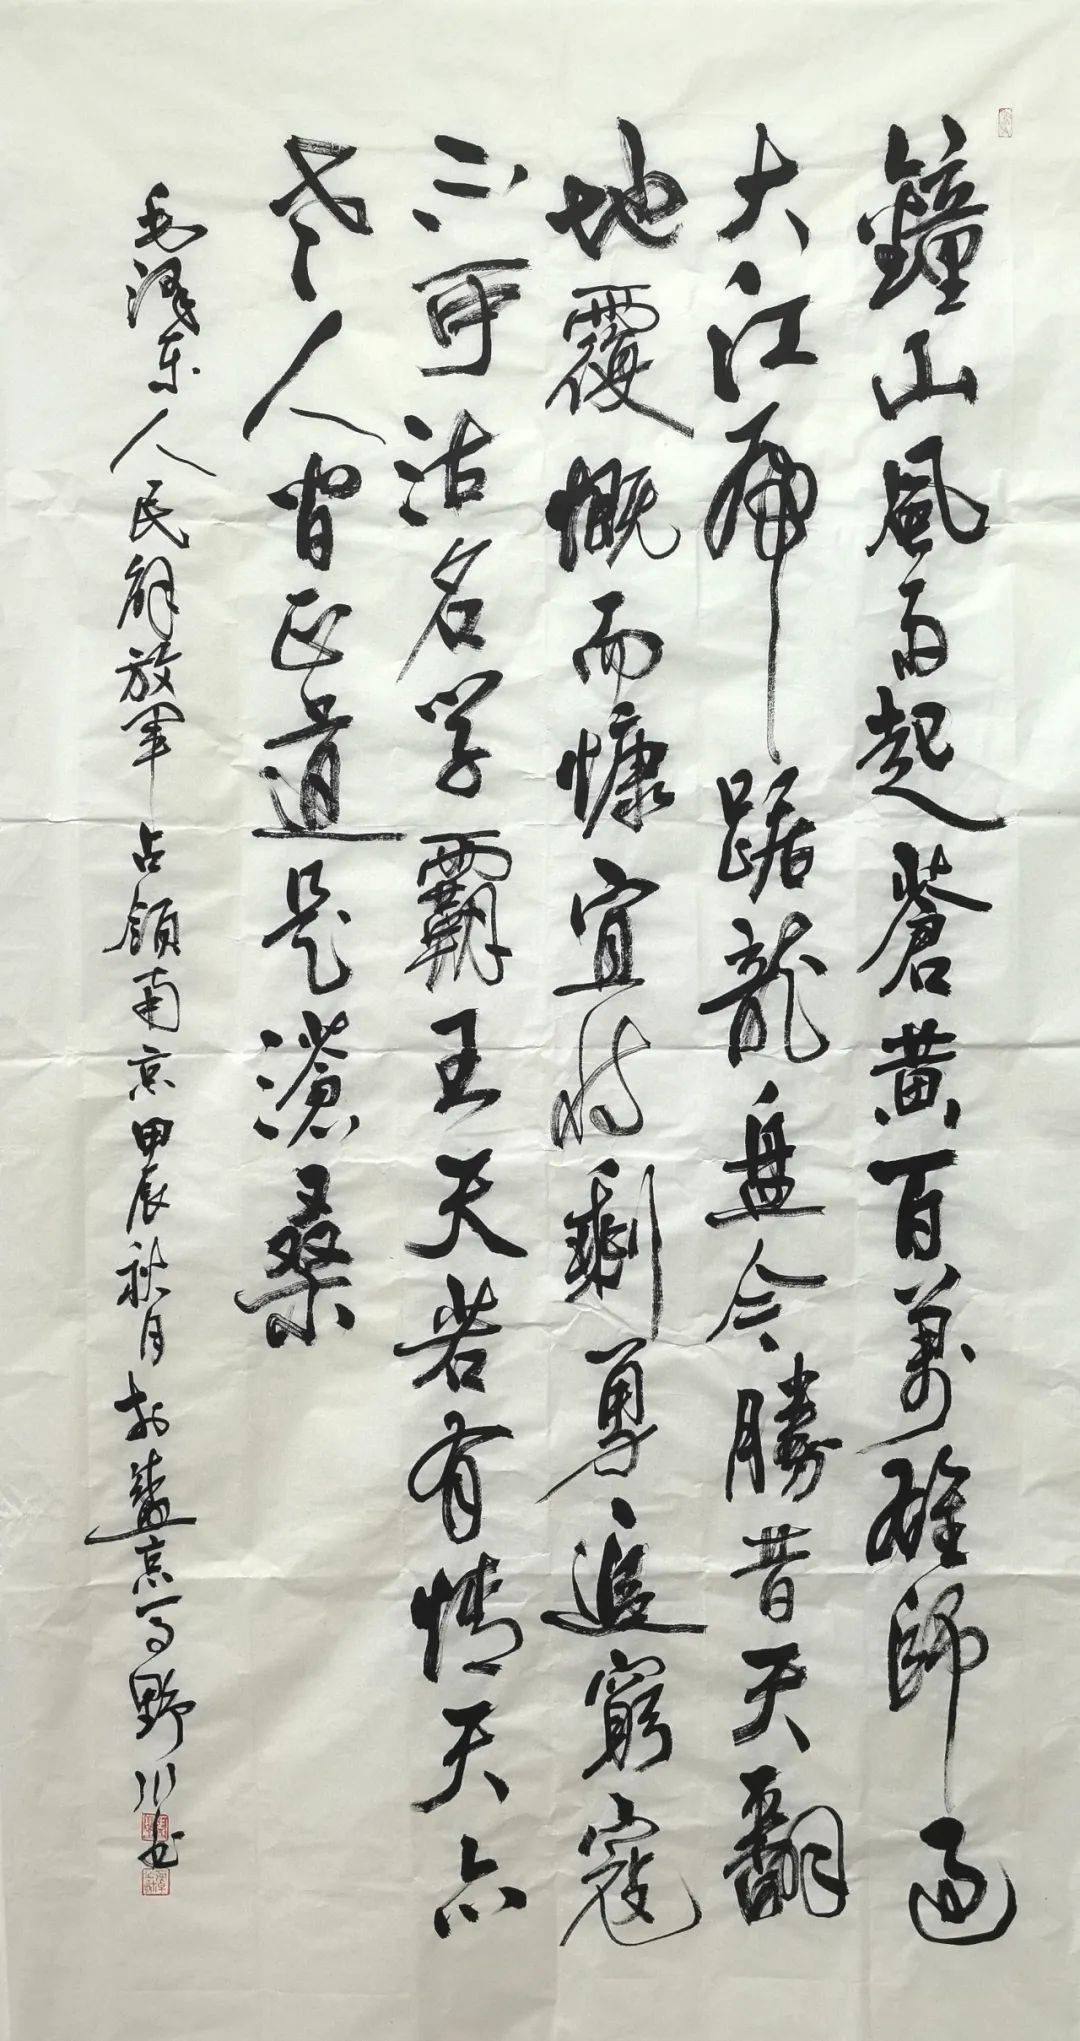 鐘山風雨起蒼黃百萬雄師過
大江虎踞龍盤今勝昔天翻
地覆慨而慷宜將剩勇追窮寇
不可沽名学霸王天若有情天亦
老人间正道是滄桑
毛澤东人民解放軍占領南京甲辰秋月於燕京馬野川书